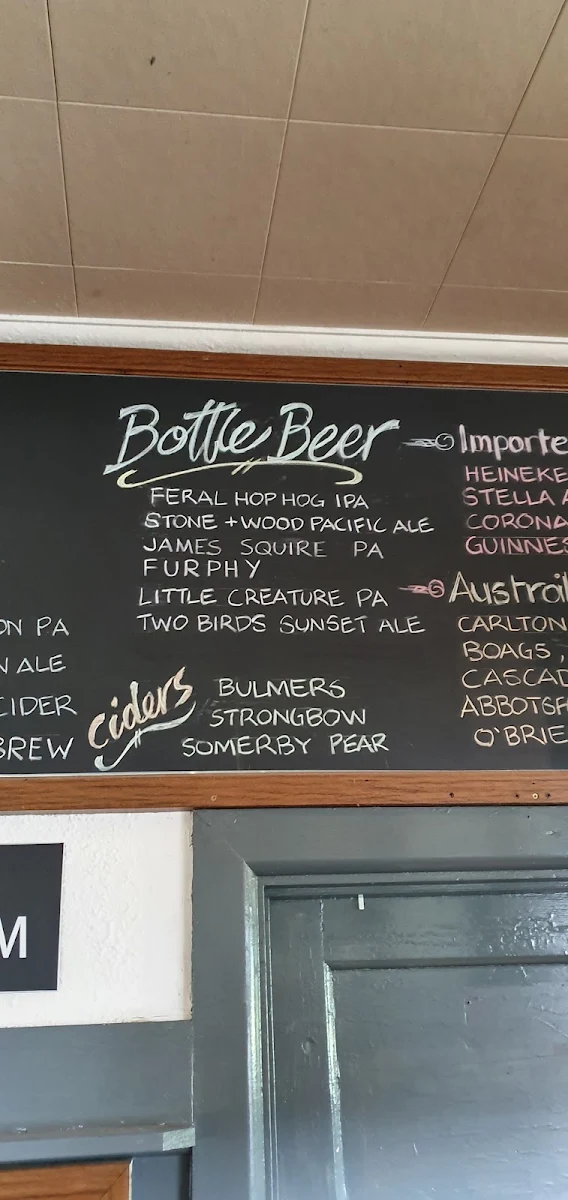 Bottle Beer
FERAL HOP HOG IPA
STONE + WOOD PACIFIC ALE
JAMES SQUIRE PA
FURPHY
LITTLE CREATURE PA
TWO BIRDS SUNSET ALE
ciders
BULMERS
STRONGBOW
SOMERBY PEAR
Importe
HEINEKE
STELLA A
CORONA
GUINNES
Austrail
CARLTON
BOAGS,
CASCAD
ABBOTSF
O'BRIE
ON PA
N ALE
CIDER
BREW
M